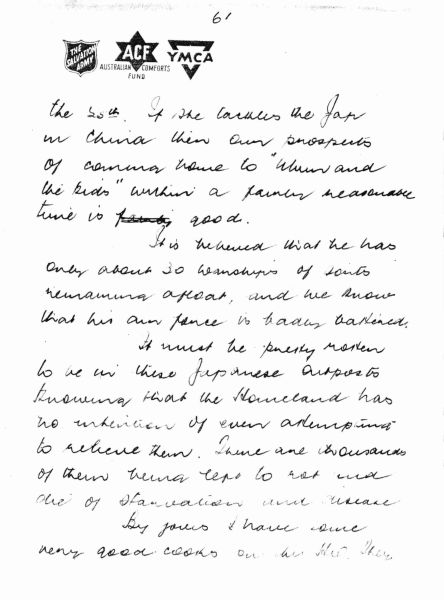 6'
THE SALVATION ARMY
ACF
AUSTRALIAN COMFORTS FUND
YMCA
the 30th. If she tackles the Jap
in China then our prospects
of coming home to "Mum and
the kids" within a fairly reasonable
time is fairly good.
It is believed that he has
only about 30 warships of sorts
remaining afloat, and we know
that his air force is badly battered.
It must be pretty rotten
to be in these Japanese outposts
knowing that the Homeland has
no intention of even attempting
to relieve them. There are thousands
of them being left to rot and
die of starvation and disease
By jove I have some
very good cooks on the They